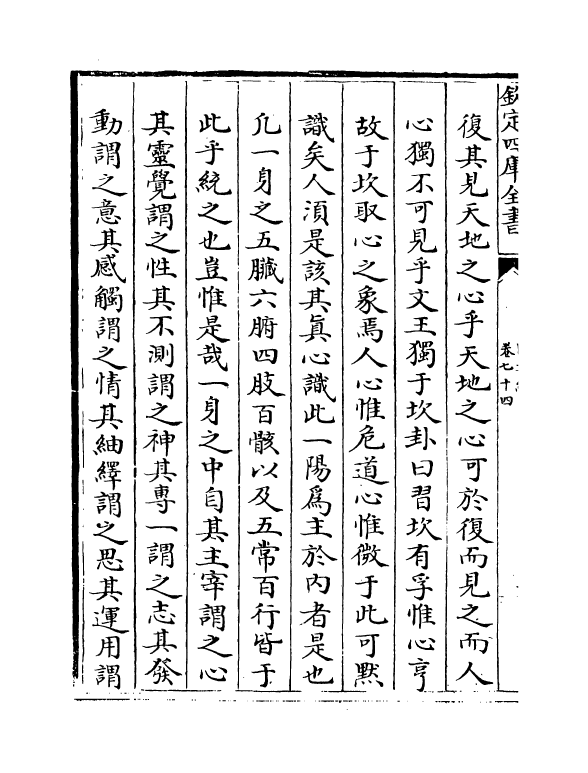 欽定四庫全書
卷七十四
復其見天地之心乎天地之心可於復而見之而人
心獨不可見乎文王獨于坎卦曰習坎有孚惟心亨
故于坎取心之象焉人心惟危道心惟微于此可默
識矣人湏是該其真心識此一陽爲主於内者是也
凡一身之五臟六腑四肢百骸以及五常百行皆于
此乎統之也豈惟是哉一身之中自其主宰謂之心
其靈覺謂之性其不測謂之神其專一謂之志其發
動謂之意其感觸謂之情其紬繹謂之思其運用謂